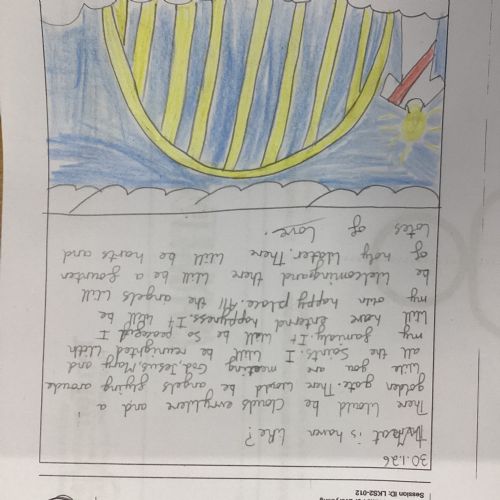 Session ID: LKS2-012
30.1.26
What is haven like?
There would be clouds everywere and a
golden gate. There would be angels flying arounde
wile you are meeting God, Jesus, Mary and
all the Saints. I will be reunighted with
my famialy. It will be so peacegul I
will have enternd happyness. It will be
my own happy place. All the angels will
be welcomingand there will be a fountern
of holy water. There will be harts and
Lotes of Love.